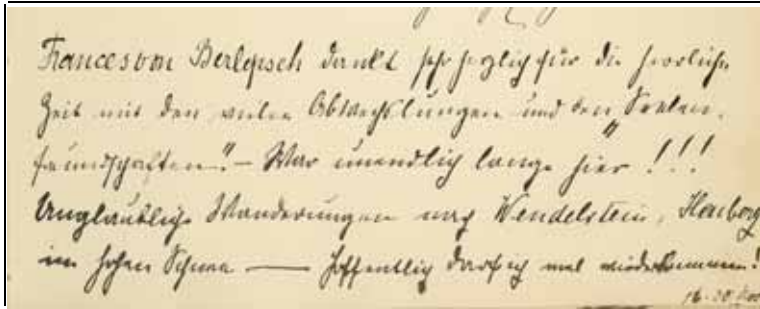 Frances von Berlepsch dankt sehr herzlich für die herrliche
Zeit mit den vielen Abwechslungen und den „Seelen-
freundschaften“. – War unendlich lange hier!!!
Unglaubliche Wanderungen nach Wendelstein,
im hohen Schnee — hoffentlich darf ich mal wiederkommen!
16.-20. Nov